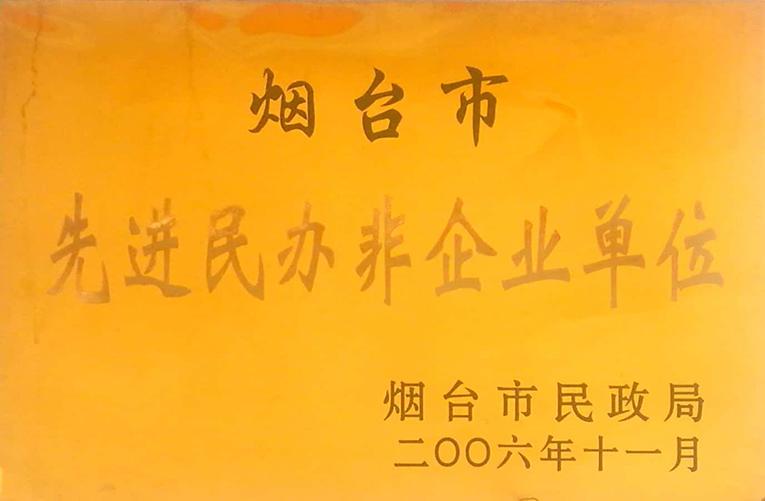 烟台市
先进民办非企业单位
烟台市民政局
二〇〇六年十一月